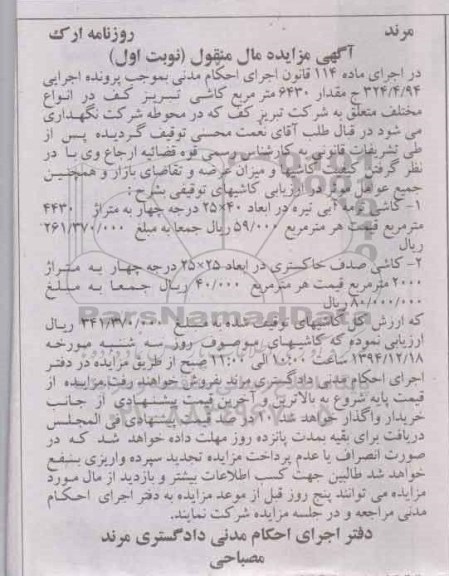 مرند روزنامه ارک
آگهی مزایده مال منقول (نوبت اول)
در اجرای ماده ۱۱۴ قانون اجرای احکام مدنی بموجب پرونده اجرایی
۳۲۴/۴/۹۴ ج مقدار ۶۴۳۰ متر مربع کاشی تبریز کف در انواع
مختلف متعلق به شرکت تبریز کف که در محوطه شرکت نگهداری
می شود در قبال طلب آقای نعمت محسنی توقیف گردیده پس از
طی تشریفات قانونی به کارشناس رسمی قوه قضائیه ارجاع وی با در
نظر گرفتن کیفیت کاشیها و میزان عرضه و تقاضای بازار و همچنین
جمیع عوامل موثر در ارزیابی کاشیهای توقیفی بشرح :
۱- کاشی ترمه آبی تیره در ابعاد ۴۰×۲۵ درجه چهار به متراژ ۴۴۳۰
مترمربع قیمت هر مترمربع ۵۹/۰۰۰ ریال جمعا به مبلغ ۲۶۱/۳۷۰/۰۰۰
ریال
۲- کاشی صدف خاکستری در ابعاد ۲۵×۲۵ درجه چهار به متراژ
۲۰۰۰ مترمربع قیمت هر مترمربع ۴۰/۰۰۰ ریال جمعا به مبلغ
۸۰/۰۰۰/۰۰۰ ریال
که ارزش کل کاشیهای توقیف شده به مبلغ ۳۴۱/۳۷۰/۰۰۰ ریال
ارزیابی نموده که کاشیهای موصوف روز سه شنبه مورخه
۱۳۹۴/۱۲/۱۸ ساعت ۱۰:۰۰ الی ۱۱:۰۰ صبح از طریق مزایده در دفتر
اجرای احکام مدنی دادگستری مرند بفروش خواهند رفت.مزایده از
قیمت پایه شروع به بالاترین و آخرین قیمت پیشنهادی از جانب
خریدار واگذار خواهد شد ۱۰ در صد قیمت پیشنهادی فی المجلس
دریافت برای بقیه بمدت پانزده روز مهلت داده خواهد شد که در
صورت انصراف یا عدم پرداخت مزایده تجدید سپرده واریزی بنفع
خواهد شد طالبین جهت کسب اطلاعات بیشتر و بازدید از مال مورد
مزایده می توانند پنج روز قبل از موعد مزایده به دفتر اجرای احکام
مدنی مراجعه و در جلسه مزایده شرکت نمایند.
دفتر اجرای احکام مدنی دادگستری مرند
مصباحی
ParsNamadData